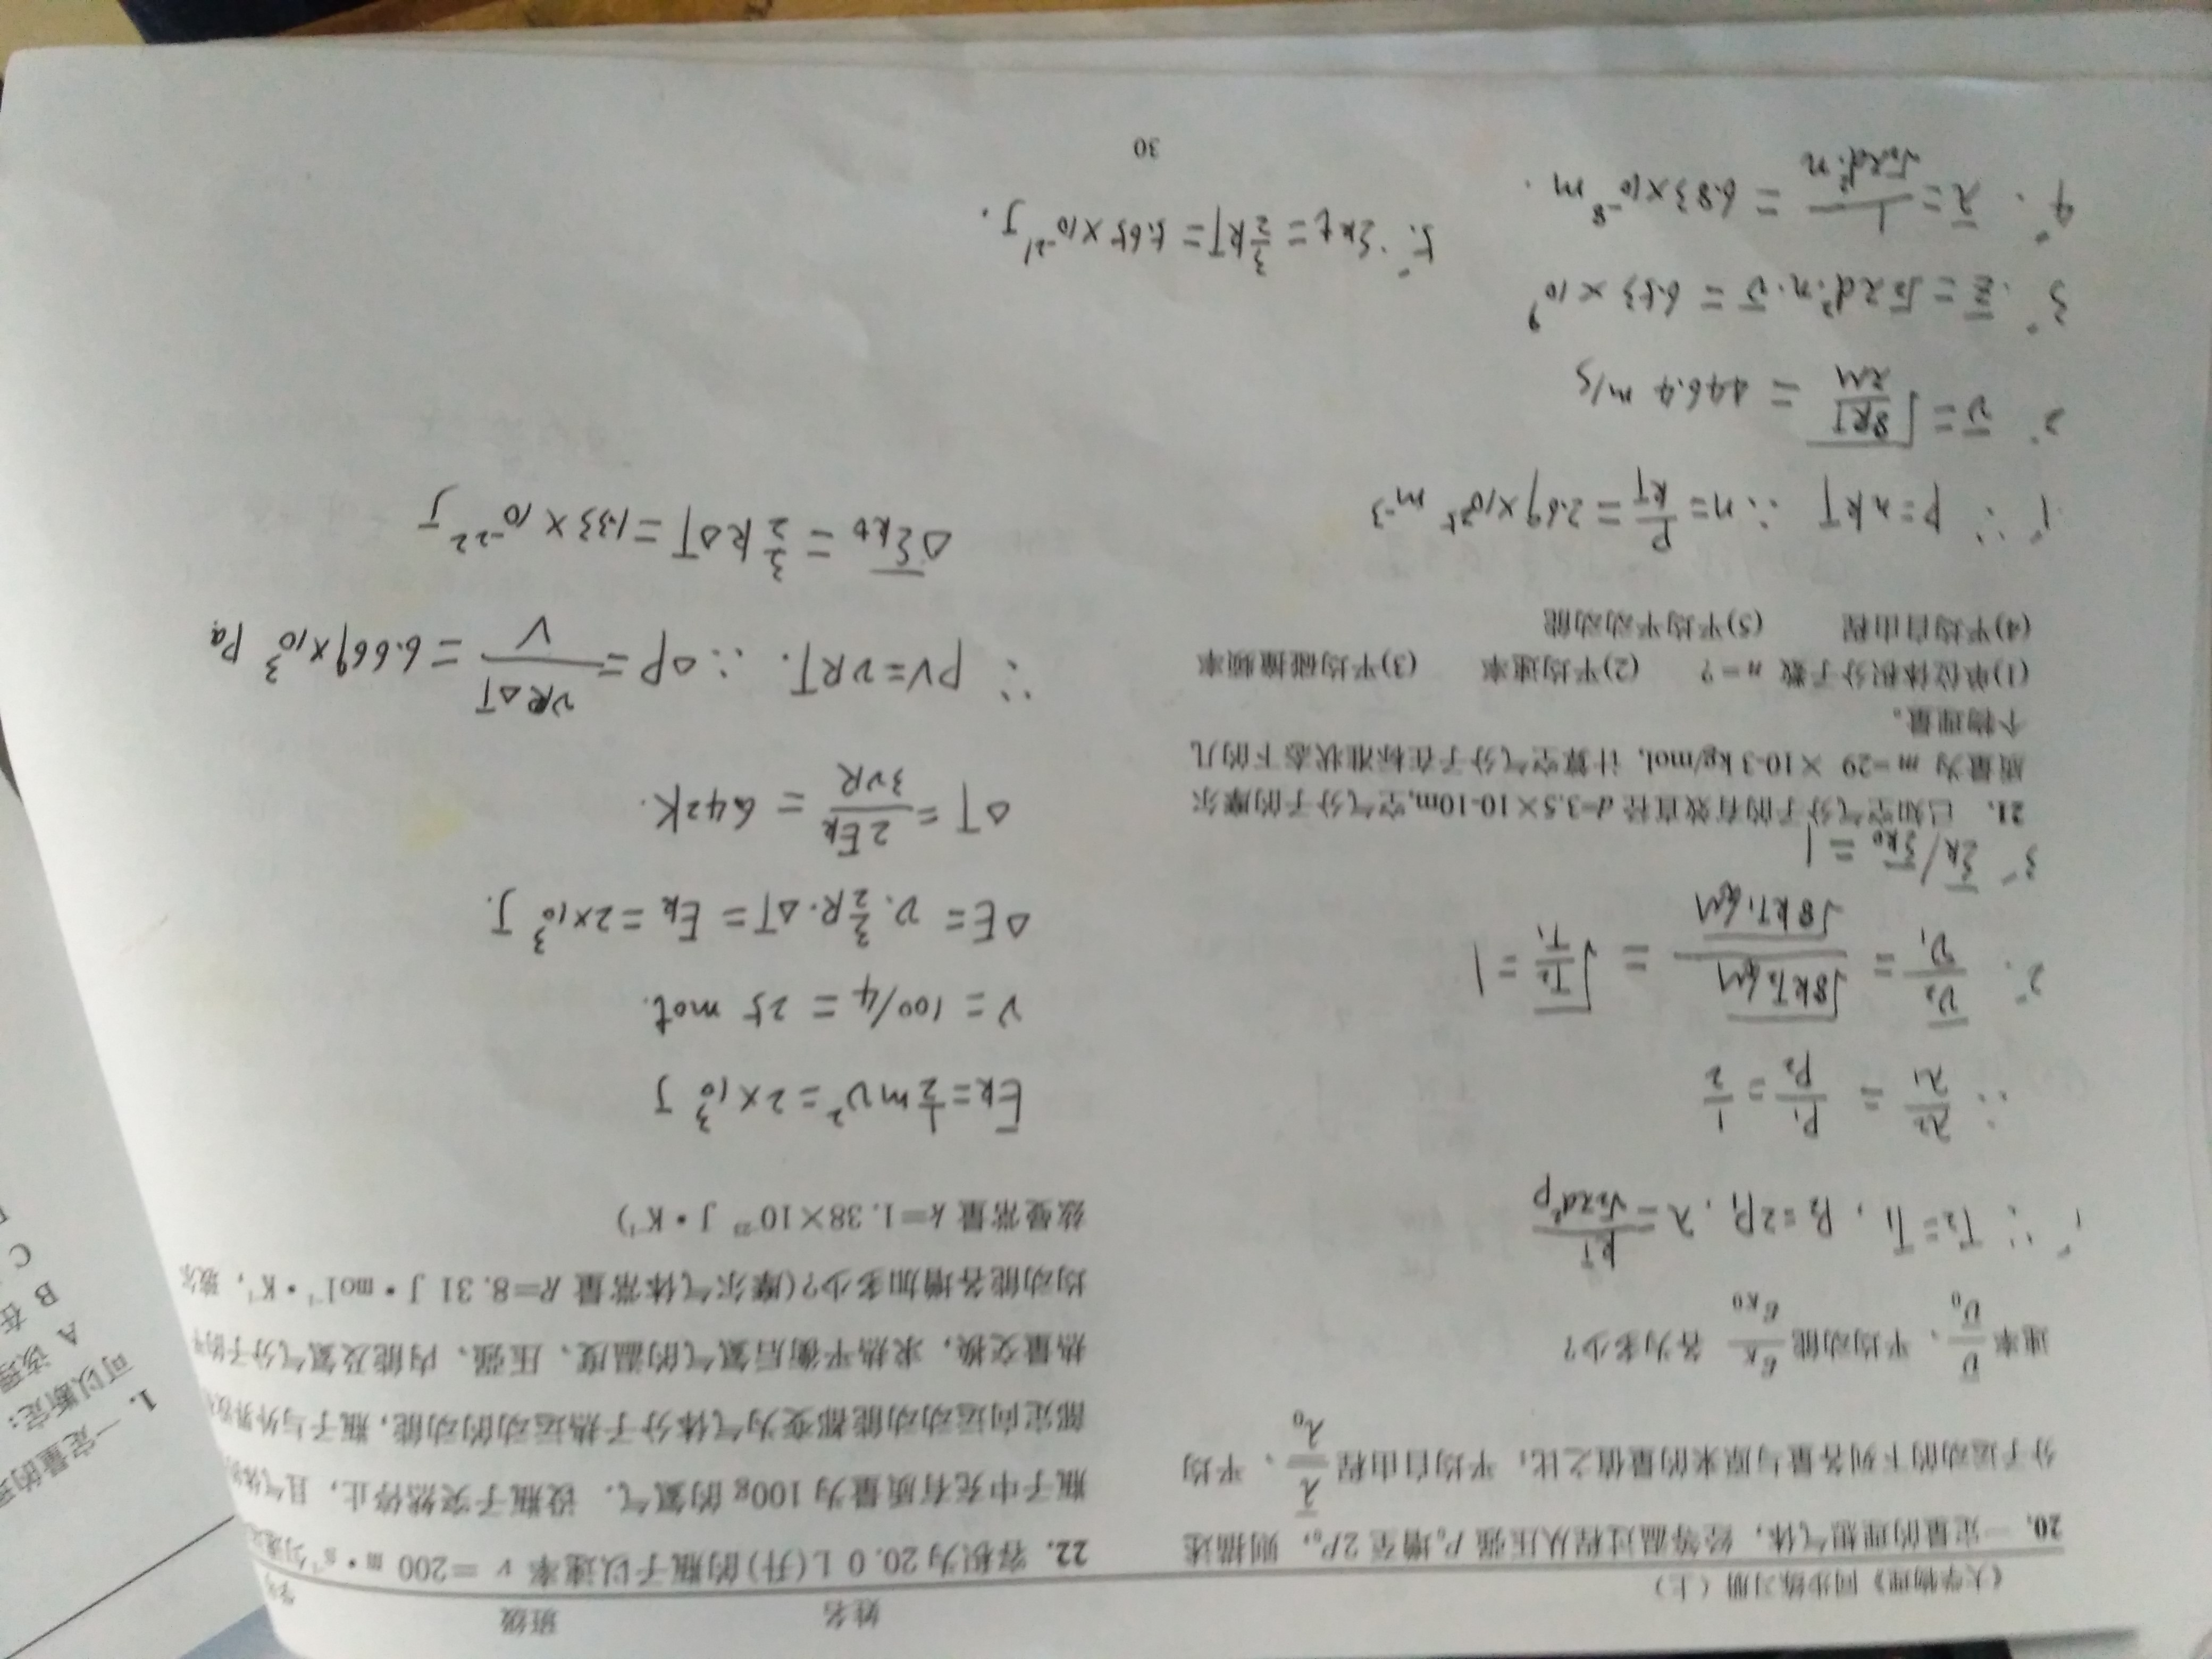 《大学物理》同步练习册（上）
姓名 班级 学号
20. 一定量的理想气体，经等温过程从压强 P₀增至 2P₀，则描述
分子运动的下列各量与原来的量值之比：平均自由程 λ̄/λ̄₀、平均
速率 v̄/v̄₀、平均动能 ε̄K/ε̄K0 各为多少？
1° ∵ T₂=T₁, P₂=2P₁. λ=kT/√2πd²P
∴ λ₂/λ₁ = P₁/P₂ = 1/2
2° v̄₂/v̄₁ = √8kT₂/πM / √8kT₁/πM = √T₂/T₁ = 1
3° ε̄k/ε̄k₀ = 1
21. 已知空气分子的有效直径 d=3.5×10-10m,空气分子的摩尔
质量为 m=29 ×10-3 kg/mol, 计算空气分子在标准状态下的几
个物理量。
(1)单位体积分子数 n=? (2)平均速率 (3)平均碰撞频率
(4)平均自由程 (5)平均平动动能
1° ∵ P=nkT ∴ n=P/kT=2.69×10²⁵ m⁻³
2° v̄=√8RT/πM = 446.4 m/s
3° z̄=√2πd²·n·v̄ = 6.53×10⁹
4° λ̄=1/√2πd²·n = 6.83×10⁻⁸ m.
5° εkt=3/2kT=5.65×10⁻²¹ J.
22. 容积为 20.0 L(升)的瓶子以速率 v =200 m·s⁻¹匀速
瓶子中充有质量为 100g 的氦气．设瓶子突然停止，且气体的
部定向运动动能都变为气体分子热运动的动能，瓶子与外界没
热量交换，求热平衡后氦气的温度、压强、内能及氦气分子的平
均动能各增加多少?(摩尔气体常量 R=8.31 J·mol⁻¹·K⁻¹，玻尔
兹曼常量 k=1.38×10⁻²³ J·K⁻¹)
Ek=1/2mv²=2×10³ J
ν=100/4=25 mol.
ΔE= ν·3/2R·ΔT= Ek=2×10³ J.
ΔT=2Ek/3νR = 6.42K.
∵ PV=νRT. ∴ ΔP=νRΔT/V=6.669×10³ Pa
Δε̄kt=3/2kΔT=1.33×10⁻²² J
30
1. 一定量的
可以断定：
A 该理
B 在
C